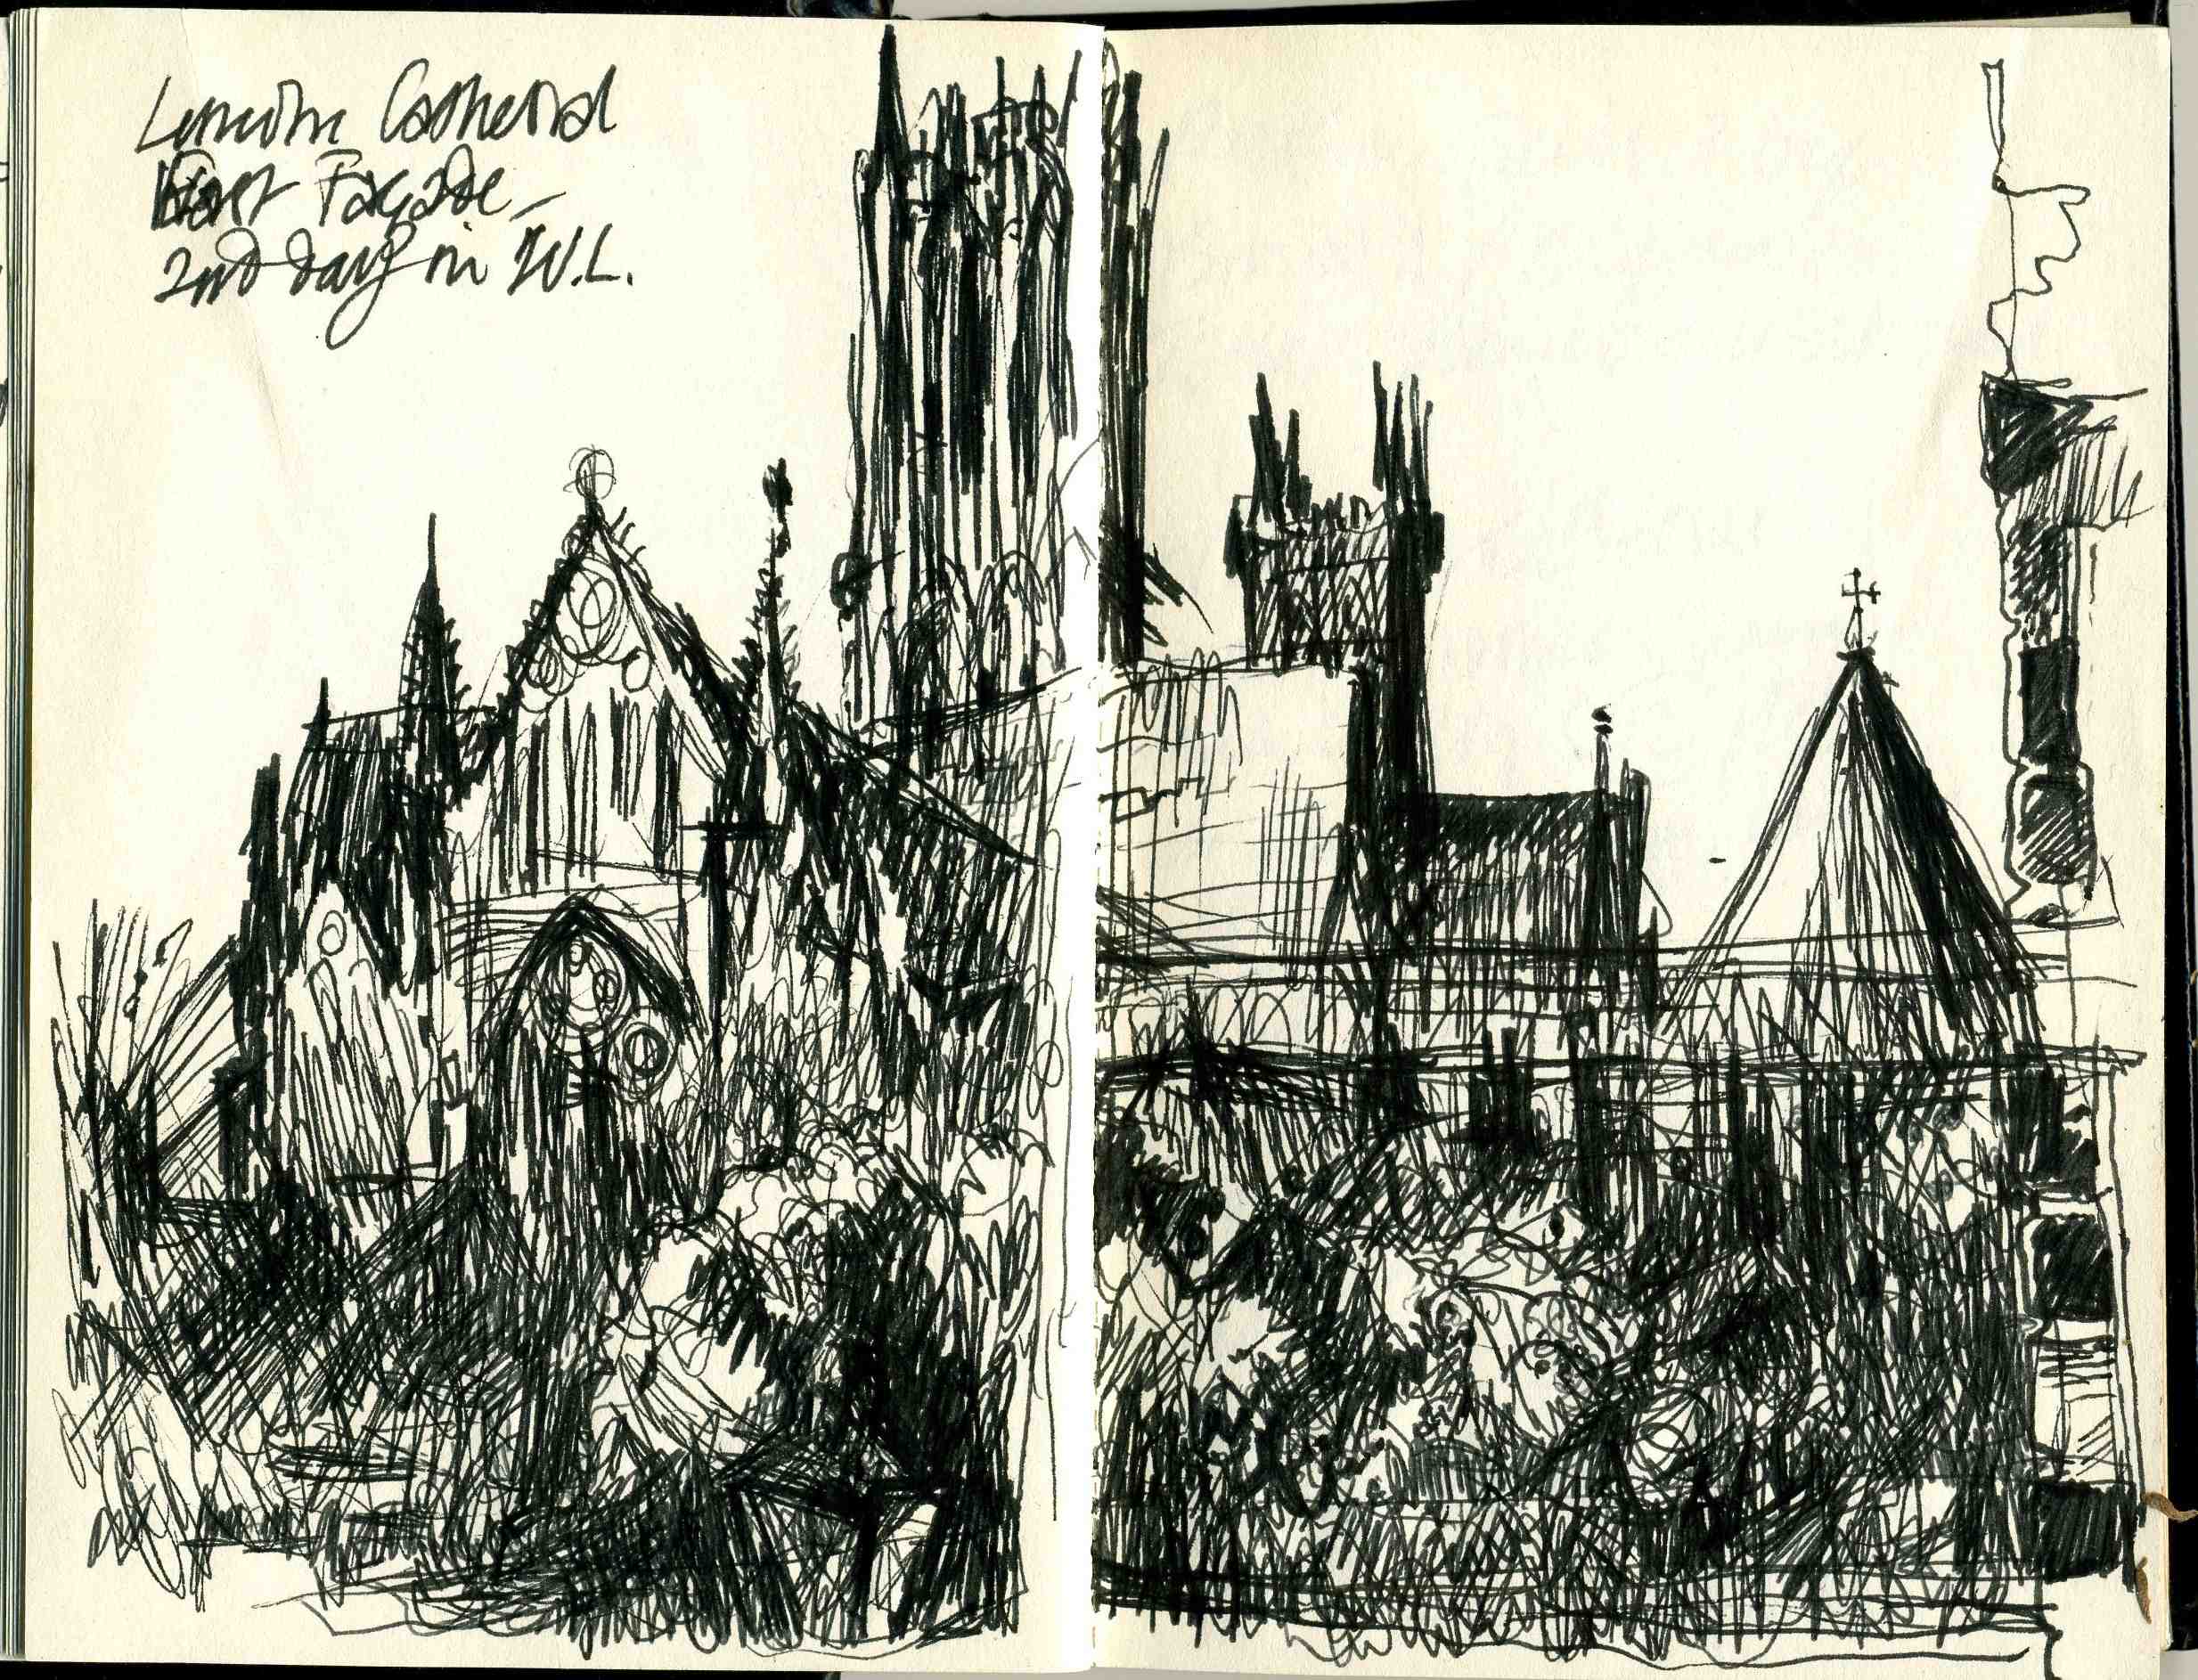 Lincoln Cathedral
East Façade –
2nd day in W.L.